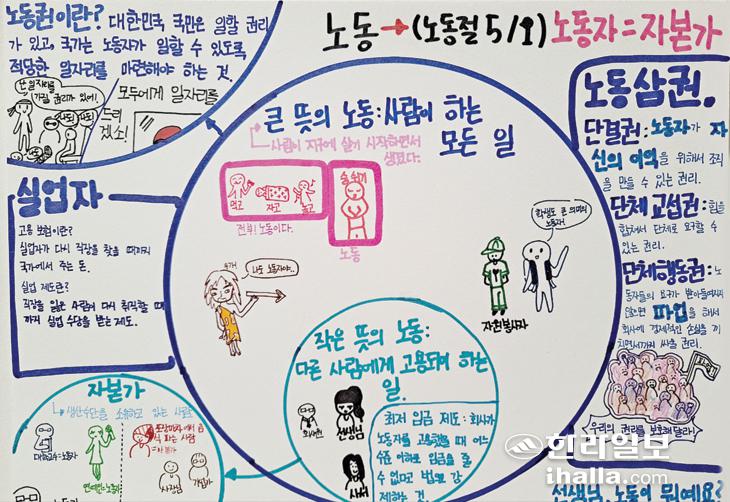 노동→(노동절 5/1) 노동자=자본가
노동권이란? 대한민국 국민은 일할 권리
가 있고, 국가는 노동자가 일할 수 있도록
적당한 일자리를 마련해야 하는 것.
난 일자리를
가질 권리가 있어!
모두에게 일자리를
드리
겠소!
큰 뜻의 노동: 사람이 하는
모든 일
사람이 지구에 살기 시작하면서
생겼다.
먹고
자고
놀고
전부! 노동이다.
숨쉬기
노동
나도 노동자야..
학생도 큰 의미의
노동자!
자원봉사자
노동삼권.
단결권: 노동자가 자
신의 이익을 위해서 조직
을 만들 수 있는 권리.
단체 교섭권: 힘을
합쳐서 단체로 요구할 수
있는 권리.
단체행동권: 노
동자들의 요구가 받아들여지지
않으면 파업을 해서
회사에 경제적인 손실을 끼
치면서까지 싸울 권리.
우리의 권리를 보호해달라!
실업자
고용 보험이란?
실업자가 다시 직장을 찾을 때까지
국가에서 주는 돈.
실업 제도란?
직장을 잃은 사람이 다시 취직할 때
까지 실업 수당을 받는 제도.
작은 뜻의 노동:
다른 사람에게 고용되어 하는
일.
회사원
선생님
사서
최저 임금 제도: 회사가
노동자를 고용했을 때 어느
수준 이하로 임금을 줄
수 없다고 법으로 강
제하는 것.
자본가
생산수단을 소유하고 있는 사람
연예인=노동자
=자본가
사장님
선생님, 노동이 뭐예요?
한라일보
ihalla.com